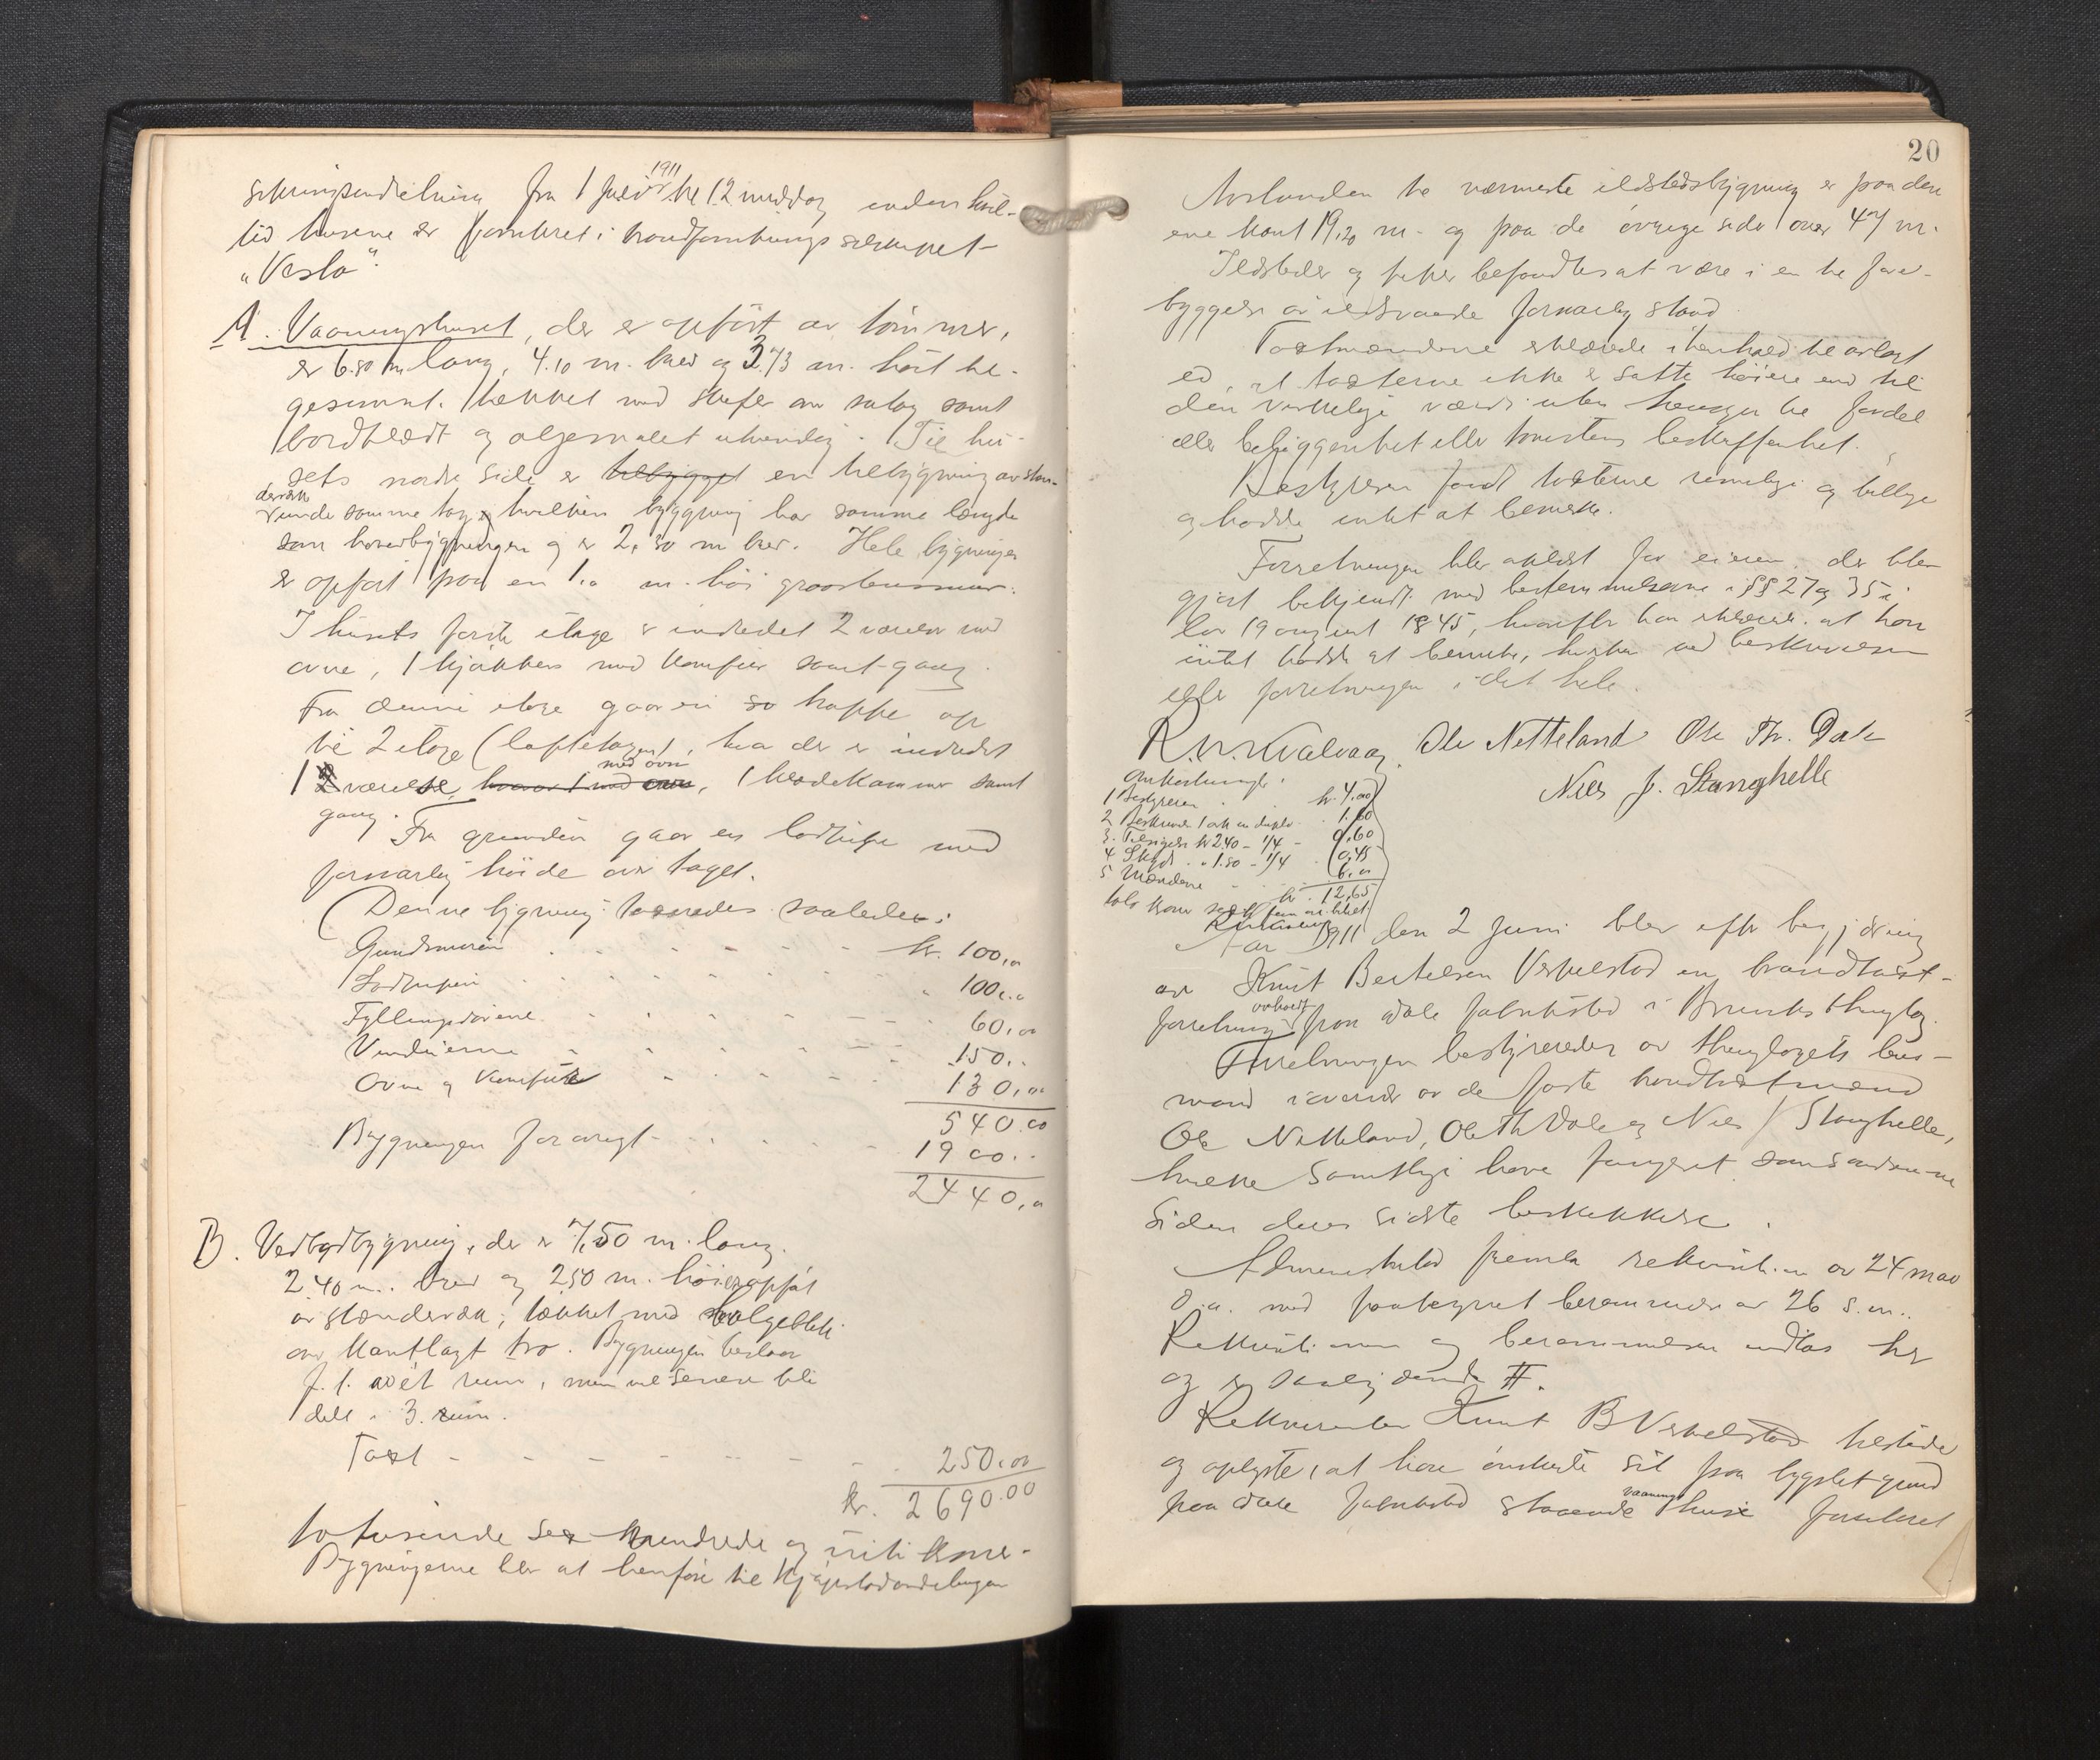 sikringsindretning fra 1 Juli 1911 kl 12 middag inden hvil-
tid husene er forsikret i brandforsikringsselskapet
"Vesta".
A. Vaaningshuset, der er opført av tømmer,
er 6.80 m lang, 4.10 m. bred og 3.73 m. høit til
gesimset. Tækket med skifer av sutag samt
bordklædt og oljemalet utvendig. Til hu-
sets nordre side er tilbygget en tilbygning av sten-
derverk
under samme tag, hvilken bygning har samme længde
som hovedbygningen og er 2,30 m bred. Hele bygningen
er opført paa en 1.0 m. høi graastensmur.
I husets første etage er indredet 2 værelser med
ovne, 1 kjøkken med komfur samt gang.
Fra denne etage gaar en trappe op
til 2 etage (loftetagen), hvor der er indredet
1 værelse, hvorav 1 med ovn, med ovn 1 klædekammer samt
gang.
Fra grunden gaar en lodpipe med
forsvarlig høide over taget.
Denne bygning taxeredes saaledes:
Grundmuren kr. 100,00
Lodpipen 100,00
Fyllingsdørene 60,00
Vinduerne 150,..
Ovne og komfur 130,00
540.00
Bygningen forøvrigt 1900..
2440,00
B. Vedbodbygning, der er 7,50 m. lang.
2.40 m. bred og 2,50 m. høi er opført
av stænderverk, tækket med bølgeblik
over kantlagt tro. Bygningen bestaar
f. t. av et rum, men vil senere bli
delt i 3 rum.
Taxt 250,00
kr. 2690.00
to tusinde sex hundrede og nitti kroner.
Bygningerne blir at henføre til Kjøpstadavdelingen
20
Avstanden til nærmeste ildstedsbygning er paa den
ene kant 19,20 m. og paa de øvrige sider over 47 m.
Ildsteder og piper befandtes at være i en til fore-
byggelse av ildsvaade forsvarlig stand.
Taxtmændene erklærede i henhold til avlagt
ed, at taxterne ikke er satte høiere end til
den virkelige værdi uten hensyn til fordel
eller beliggenhet eller tomtens beskaffenhet.
Bestyreren fandt taxterne rimelige og billige
og hadde intet at bemerke.
Forretningen blev oplæst for eieren, der blev
gjort bekjendt med bestemmelserne i §§ 27 og 35 i
lov 19 august 1845, hvorefter han erklærede at han
intet hadde at bemerke, hverken ved beskrivelsen
eller forretningen i det hele.
R. N. Kvalvaag. Ole Netteland Ole Th. Dale
Nils J. Stanghelle
Omkostninger:
1 Bestyreren kr. 4,00
2 Beskrivn. 1 ark in duplo 1.60
3. Tilsigelse kr 2.40 - 1/4 - 0,60
4 Skyds " 1.80 - 1/4 0,45
5 Mændene 6,00
kr. 12,65
tolv kroner sexti fem øre betalt
RNKvalvaag
Aar 1911 den 2 Juni blev efter begjæring
av Knut Bertelsen Veskelstad en brandtaxt-
forretning avholdt paa Dale fabriksted i Bruviks thinglag.
Forretningen bestyredes av thinglagets lens-
mand i overvær av de faste brandtaxtmænd
Ole Netteland, Ole Th Dale og Nils J Stanghelle,
hvilke samtlige have fungeret som saadanne
siden deres sidste beskikkelse.
Administrator fremla rekvisition av 24 mai
d.a. med paategnet berammelse av 26 s.m..
Rekvisitionen og berammelsen indtas her
og er saalydende #.
Rekvirenten Knut B Veskelstad tilstede
og oplyste, at have ønskede sit paa bygslet grund
paa Dale fabriksted staaende vaanings hus forsikret